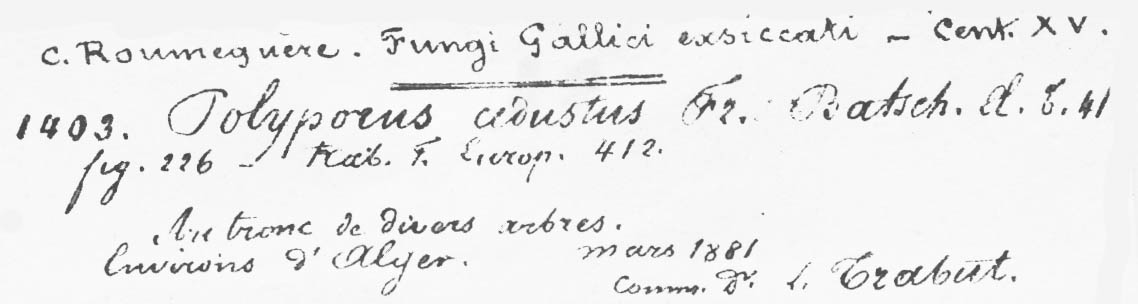 C. Roumeguère. Fungi Gallici exsiccati — Cent. XV.
1403. Polyporus adustus Fr. Batsch. El. t. 41
fig. 226 — Rab. F. Europ. 412.
Au tronc de divers arbres.
Environs d'Alger. mars 1881
Comm. Dr. L. Trabut.